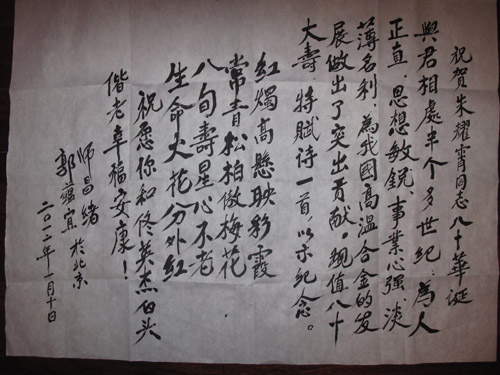 祝贺朱耀霄同志八十華诞
與君相處半个多世纪：為人
正直、思想敏鋭、事業心强、淡
薄名利，為我國高温合金的发
展做出了突出贡献。现值八十
大壽，特赋诗一首，以示纪念。
红燭高懸映彩霞
常青松柏傲梅花
八旬壽星心不老
生命火花分外红
祝愿你和佟英杰白头
偕老幸福安康！
师昌绪
郭蕴宜 於北京
二〇一二年一月十日